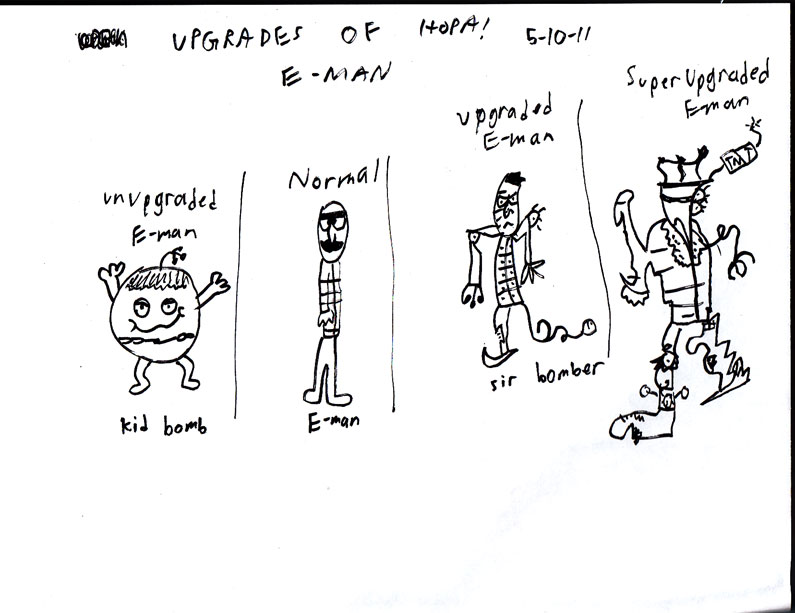 UPGRADES OF HOPA! 5-10-11
E-MAN
unupgraded
E-man
kid bomb
Normal
E-man
upgraded
E-man
sir bomber
Super Upgraded
E-man
TNT